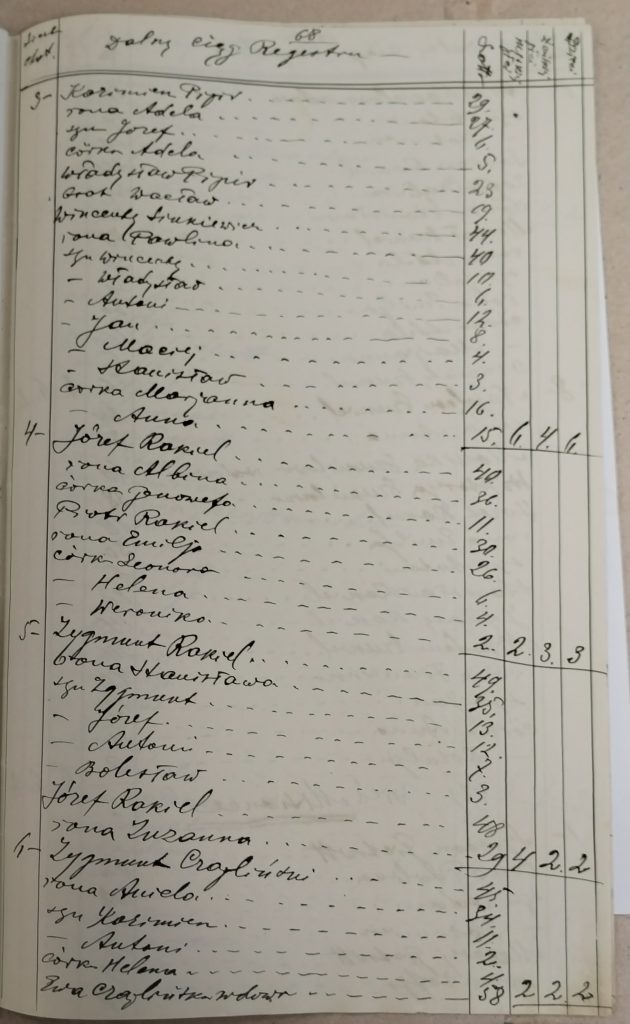 68
Dalny ciąg Regestru
Dzieci
3 – Kazimierz Pipir 29
żona Adela 27
syn Józef 6
córka Adela 5.
Władysław Pipir 23
brat Wacław
Wincenty Sinkiewicz 44.
żona Pawlina 40
syn Wincenty 10
– Władysław 6.
– Antoni 12.
– Jan 8.
– Maciej 4.
– Stanisław 3.
córka Marjanna 16.
– Anna 15. 6. 4. 6.
4 – Józef Rakiel 40.
żona Albina 36.
córka Janowefa 11.
Piotr Rakiel 30.
żona Emilja 26.
córk Leonora 6.
– Helena 4.
– Weronika 2. 2. 3. 3
5 – Zygmunt Rakiel 49.
żona Stanisława 35.
syn Zygmunt 13.
– Józef 12
– Antoni 7.
– Bolesław 3.
Józef Rakiel 48
żona Zuzanna 29 4 2. 2
6 – Zygmunt Czagliński 45.
żona Aniela 34
syn Kazimierz 11.
– Antoni 2.
córk Helena 4.
Ewa Czaglińska wdowa 58 2 2 2